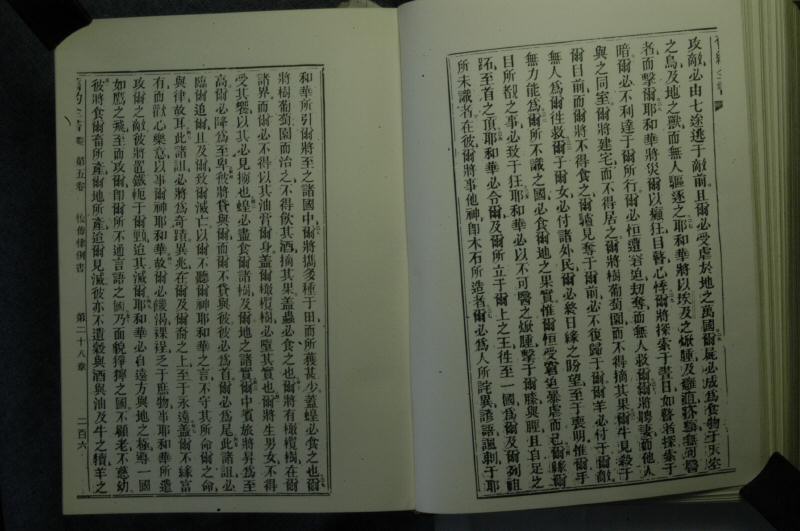 攻敵必由七途逃于敵前且爾必受虐於地之萬國爾屍必成為食物于天空
之鳥及地之獸而無人驅逐之耶和華將以埃及之瘷腫及
者而擊爾耶和華將災爾以癲狂目瞽心悸爾將探索于晝日如瞽者探索于
暗爾必不利達于爾所行爾必恒遭窘迫刼奪而無人救爾爾將聘妻而他人
與之同室爾將建宅而不得居之爾將樹葡萄園而不得摘其果爾牛見殺于
爾目前而爾將不得食之爾驢見奪于爾前必不復歸于爾爾羊必付于爾敵
無人為爾徃救爾子爾女必付諸外民爾必終日緣之盼望至于喪明惟爾手
無力能為爾所不識之國必食爾地之果實惟爾恒受窘迫暴虐而已爾緣爾
目所覩之事必致于狂耶和華必以不可醫之瘷腫擊于爾膝與脛且自足之
跖至首之頂耶和華必令爾及爾所立于爾上之王徃至一國為爾及爾列祖
所未識者在彼爾將事他神卽木石所造者爾必為人所詫異諺語諷刺于耶
和華所引爾將至之諸國中爾將攜多種于田而所獲甚少蓋蝗必食之也爾
將樹葡萄園而治之不得飲其酒摘其果蓋蟲必食之也爾將有橄欖樹在爾
諸界而爾必不得以其油膏爾身蓋爾橄欖樹必墮其實也爾將生男女不得
受其饗以其必見擄也蝗必盡食爾樹及爾地之諸實爾中賓旅將昇為至
高爾必降為至卑彼將貸與爾而爾不貸與彼彼必為首爾必為尾此諸詛必
臨爾追爾且及爾致爾滅亡以爾不聽爾神耶和華之言不守其所命爾之命
與律故耳此諸詛必將為奇蹟異兆在爾及爾裔之上至于永遠蓋爾不緣富
有而歡心樂意以事爾神耶和華故爾必饑渴裸裎乏于庶物事耶和華所遣
攻爾之敵彼將置鐵軛于爾頸迨其滅爾耶和華必自遠方與地之極導一國
如鷹之飛至而攻爾卽爾所不通言語之國乃面貌猙獰之國不顧老不慈幼
彼將食爾畜所產爾地所產迨爾見滅彼亦不遺穀與酒與油及牛之犢羊之
第五卷 復傳律例書 第二十八章 二百六